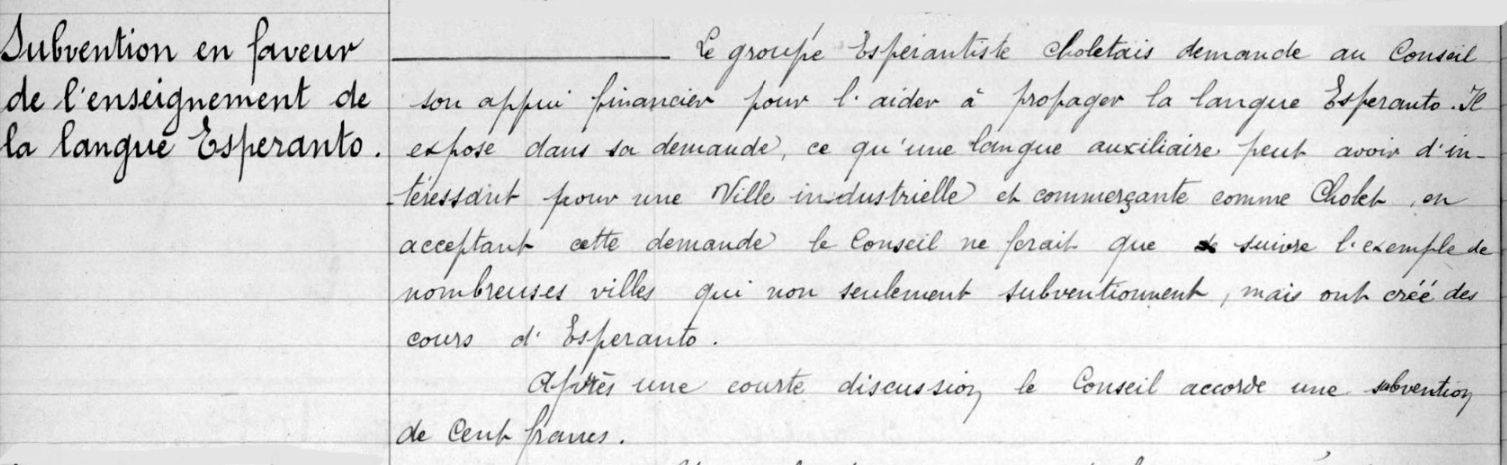 Subvention en faveur
de l'enseignement de
la langue Esperanto.
Le groupe Espérantiste Choletais demande au Conseil
son appui financier pour l'aider à propager la langue Esperanto. Il
expose dans sa demande, ce qu'une langue auxiliaire peut avoir d'in-
-téressant pour une Ville industrielle et commerçante comme Cholet, en
acceptant cette demande le Conseil ne ferait que suivre l'exemple de
nombreuses villes qui non seulement subventionnent, mais ont créé des
cours d'Esperanto.
Après une courte discussion le Conseil accorde une subvention
de Cent francs.